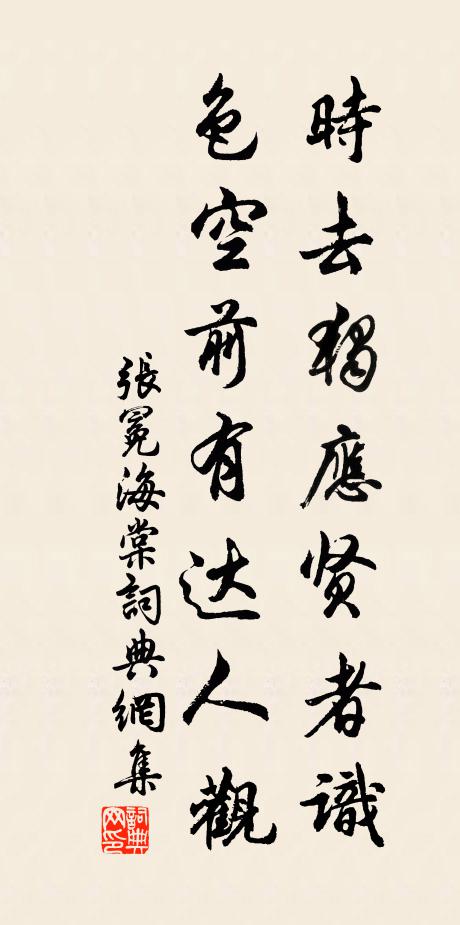 時去獨應贤者識
色空前有达人觀
張冕海棠詞典網集
詞典
网印